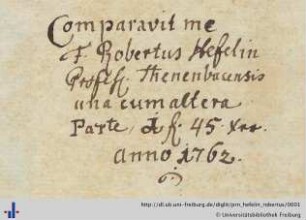 Comparavit me
F. Robertus Hefelin
Profess. Thenenbacensis
una cum altera
Parte, d f. 45 Xer.
anno 1762.
http://dl.ub.uni-freiburg.de/diglit/prn_hefelin_robertus/0001
© Universitätsbibliothek Freiburg